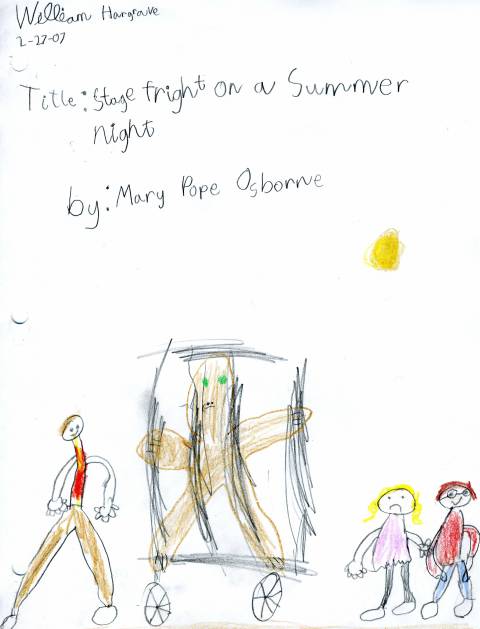 William Hargrave
2-27-07
Title: Stage fright on a Summer
night
by: Mary Pope Osborne